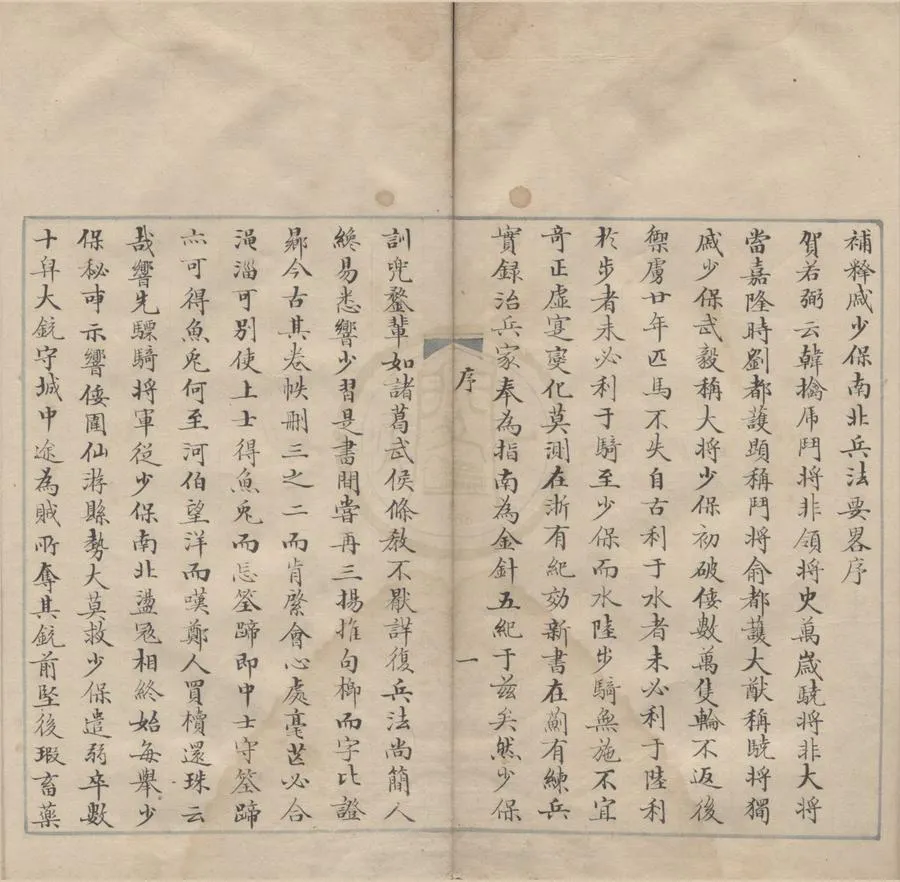 補釋戚少保南北兵法要畧序
賀若弼云韓擒虎鬥將非領將史萬嵗驍將非大將
當嘉隆時劉都護顕稱鬥將俞都護大猷稱驍將獨
戚少保武毅稱大將少保初破倭數萬隻輪不返後
禦虜廿年匹馬不失自古利于水者未必利于陸利
於步者未必利于騎至少保而水陸步騎無施不宜
竒正虛寔變化莫測在浙有紀効新書在薊有練兵
實録治兵家奉為指南為金針五紀于兹矣然少保
序
一
訓兜鍪輩如諸葛武侯條教不厭詳復兵法尚簡人
纔易悉響少習是書間嘗再三揚搉句櫛而字比證
曏今古其卷帙刪三之二而肯綮會心處毫芒必合
澠淄可别使上士得魚兎而忘筌蹄即中士守筌蹄
亦可得魚兎何至河伯望洋而嘆鄭人買櫝還珠云
哉響先驃騎將軍從少保南北盪冦相終始每舉少
保秘事示響倭圍仙游縣勢大莫救少保遣弱卒數
十舁大銃守城中途為賊所奪其銃前堅後瑕畜藥